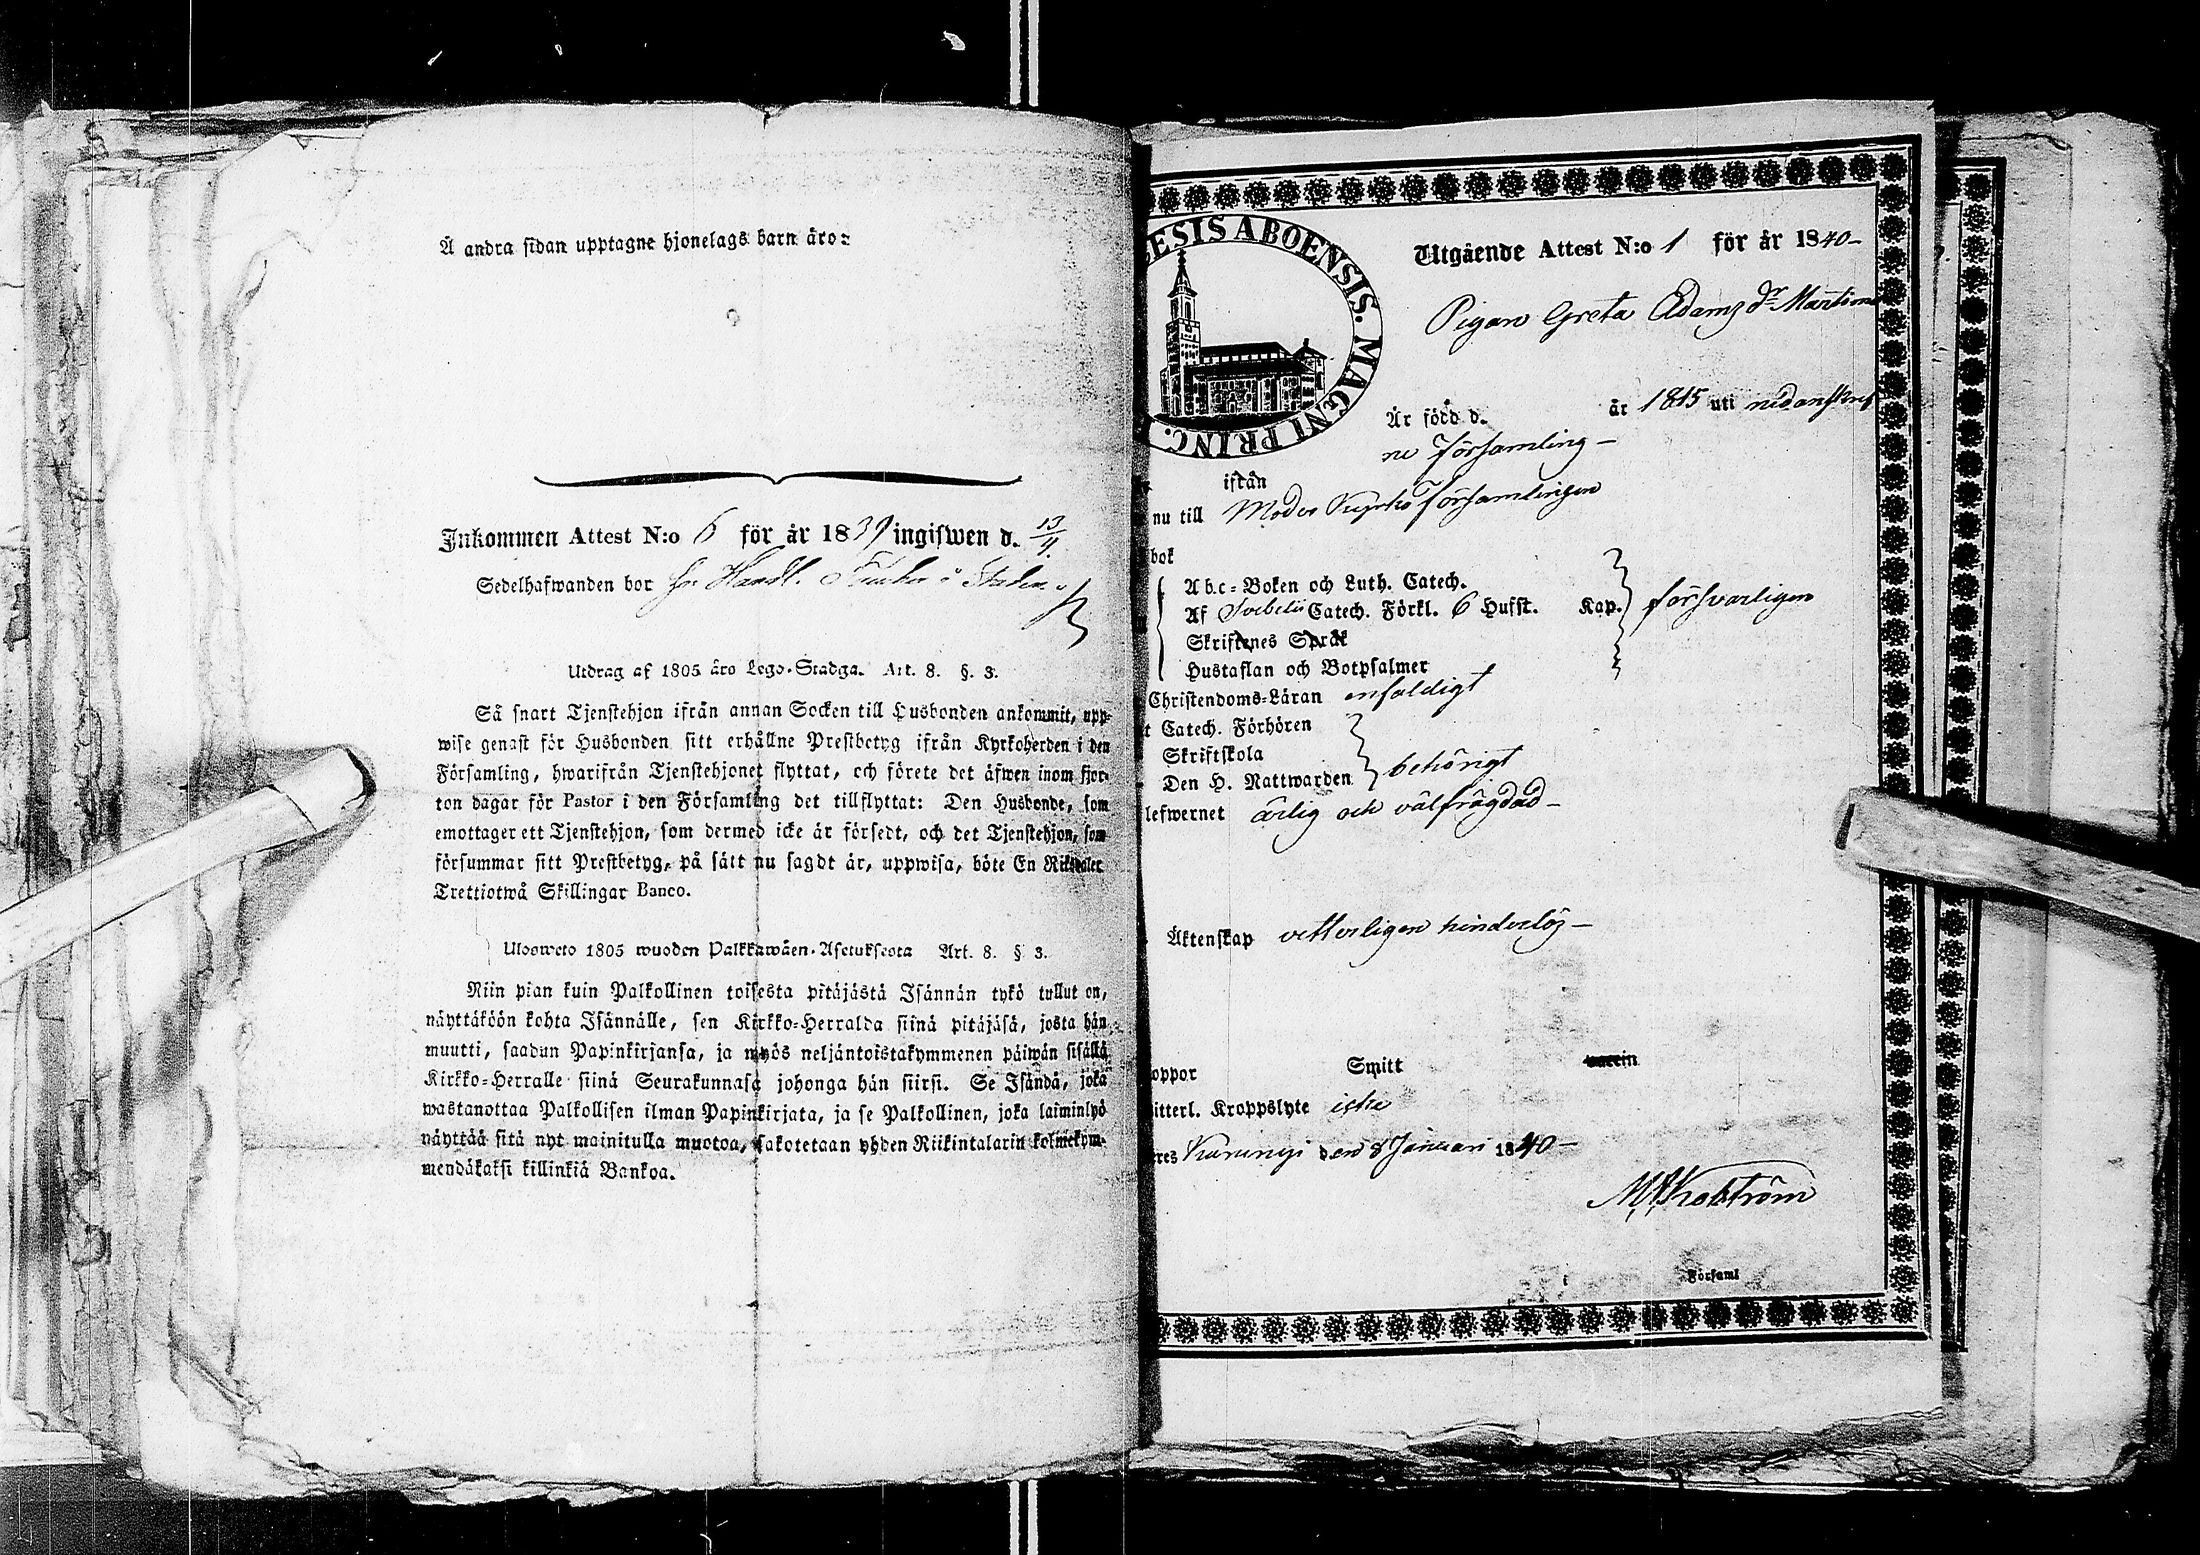 Å andra sidan upptagne hjonelags barn äro:
Inkommen Attest N:o 6 för år 1839 ingifwen d. 13/4.
Sedelhafwanden bor hr Handl. i Staden
Utdrag af 1805 års Lego-Stadga. Art. 8. §. 3.
Så snart Tjenstehjon ifrån annan Socken till Husbonden ankommit, upp-
wise genast för Husbonden sitt erhållne Prestbetyg ifrån Kyrkoherden i den
Församling, hwarifrån Tjenstehjonet flyttat, och förete det äfwen inom fjor-
ton dagar för Pastor i den Församling det tillflyttat: Den Husbonde, som
emottager ett Tjenstehjon, som dermed icke är försedt, och det Tjenstehjon, som
försummar sitt Prestbetyg, på sätt nu sagdt är, uppwisa, böte En Riksdaler
Trettiotwå Skillingar Banco.
Ulosweto 1805 wuoden Palkkawäen-Asetuksesta Art. 8. § 3.
Niin pian kuin Palkollinen toisesta pitäjästä Isännän tykö tullut on,
näyttäköön kohta Isännälle, sen Kirkko-Herralda siinä pitäjäsä, josta hän
muutti, saadun Papinkirjansa, ja myös neljäntoistakymmenen päiwän sisällä
Kirkko-Herralle siinä Seurakunnasa johonga hän siirsi. Se Isändä, joka
wastanottaa Palkollisen ilman Papinkirjata, ja se Palkollinen, joka laiminlyö
näyttää sitä nyt mainitulla muotoa, sakotetaan yhden Riikintalarin kolmekym-
mendäkaksi killinkiä Bankoa.
ESIS ABOENSIS. MAGNI PRINC.
Utgående Attest N:o 1 för år 1840
Pigan Greta Adams dr
Är född d. år 1815 uti nedanskref
ne församling
ifrån
nu till Moder Kyrko församlingen
bok
Abc-Boken och Luth. Catech.
Af Svebelii Catech. Förkl. 6 Hufst. Kap. försvarligen
Skriftenes Språk
Hustaflan och Botpsalmer
Christendoms-Läran enfaldigt
t Catech. Förhören
Skriftskola
Den H. Nattwarden behörigt
lefwernet ärlig och välfrägdad
Äktenskap vetterligen hinderlös
oppor Smitt
itterl. Kroppslyte icke
res Karungi den 8 Januari 1840
i Församl